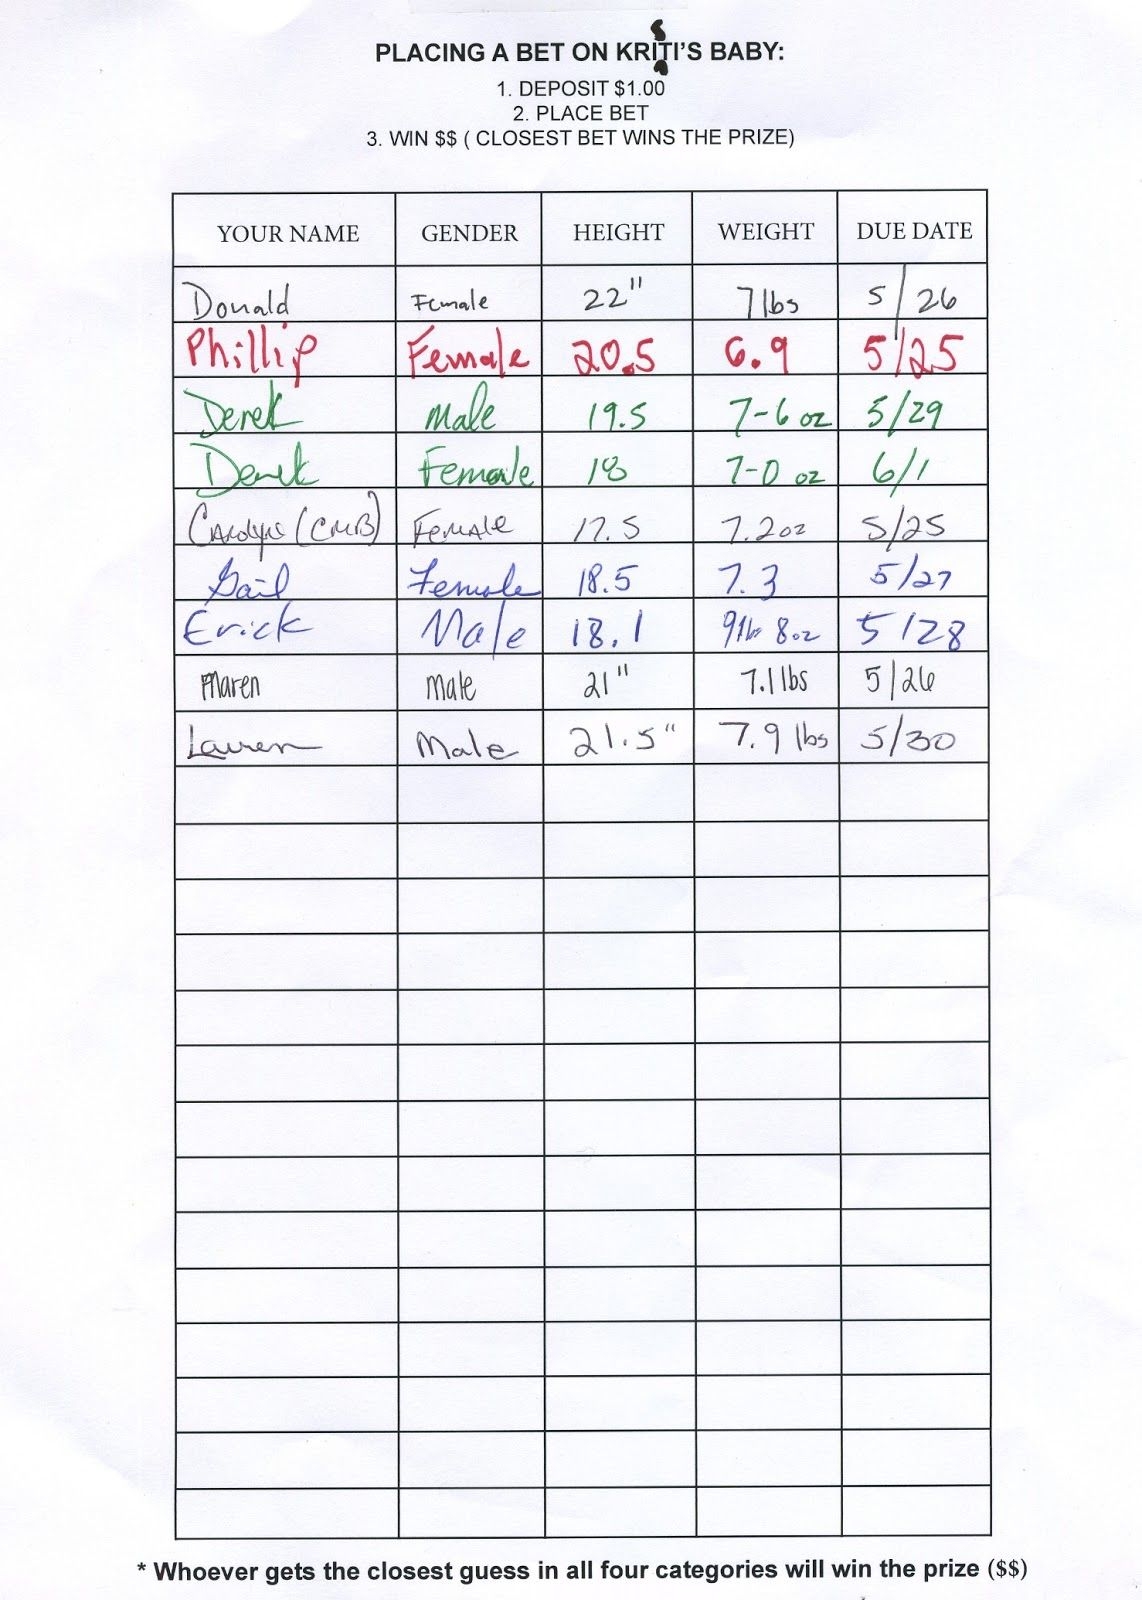 PLACING A BET ON KRITI'S BABY:
s
1. DEPOSIT $1.00
2. PLACE BET
3. WIN $$ ( CLOSEST BET WINS THE PRIZE)
YOUR NAME GENDER HEIGHT WEIGHT DUE DATE
Donald Female 22" 7 lbs 5/26
Phillip Female 20.5 6.9 5/25
Derek Male 19.5 7-6 oz 5/29
Derek Female 18 7-0 oz 6/1
Carolyn (CMB) Female 17.5 7.2oz 5/25
Gail Female 18.5 7.3 5/27
Erick Male 18.1 9lbs 8oz 5/28
Maren Male 21" 7.1 lbs 5/26
Lauren Male 21.5" 7.9 lbs 5/30
* Whoever gets the closest guess in all four categories will win the prize ($$)